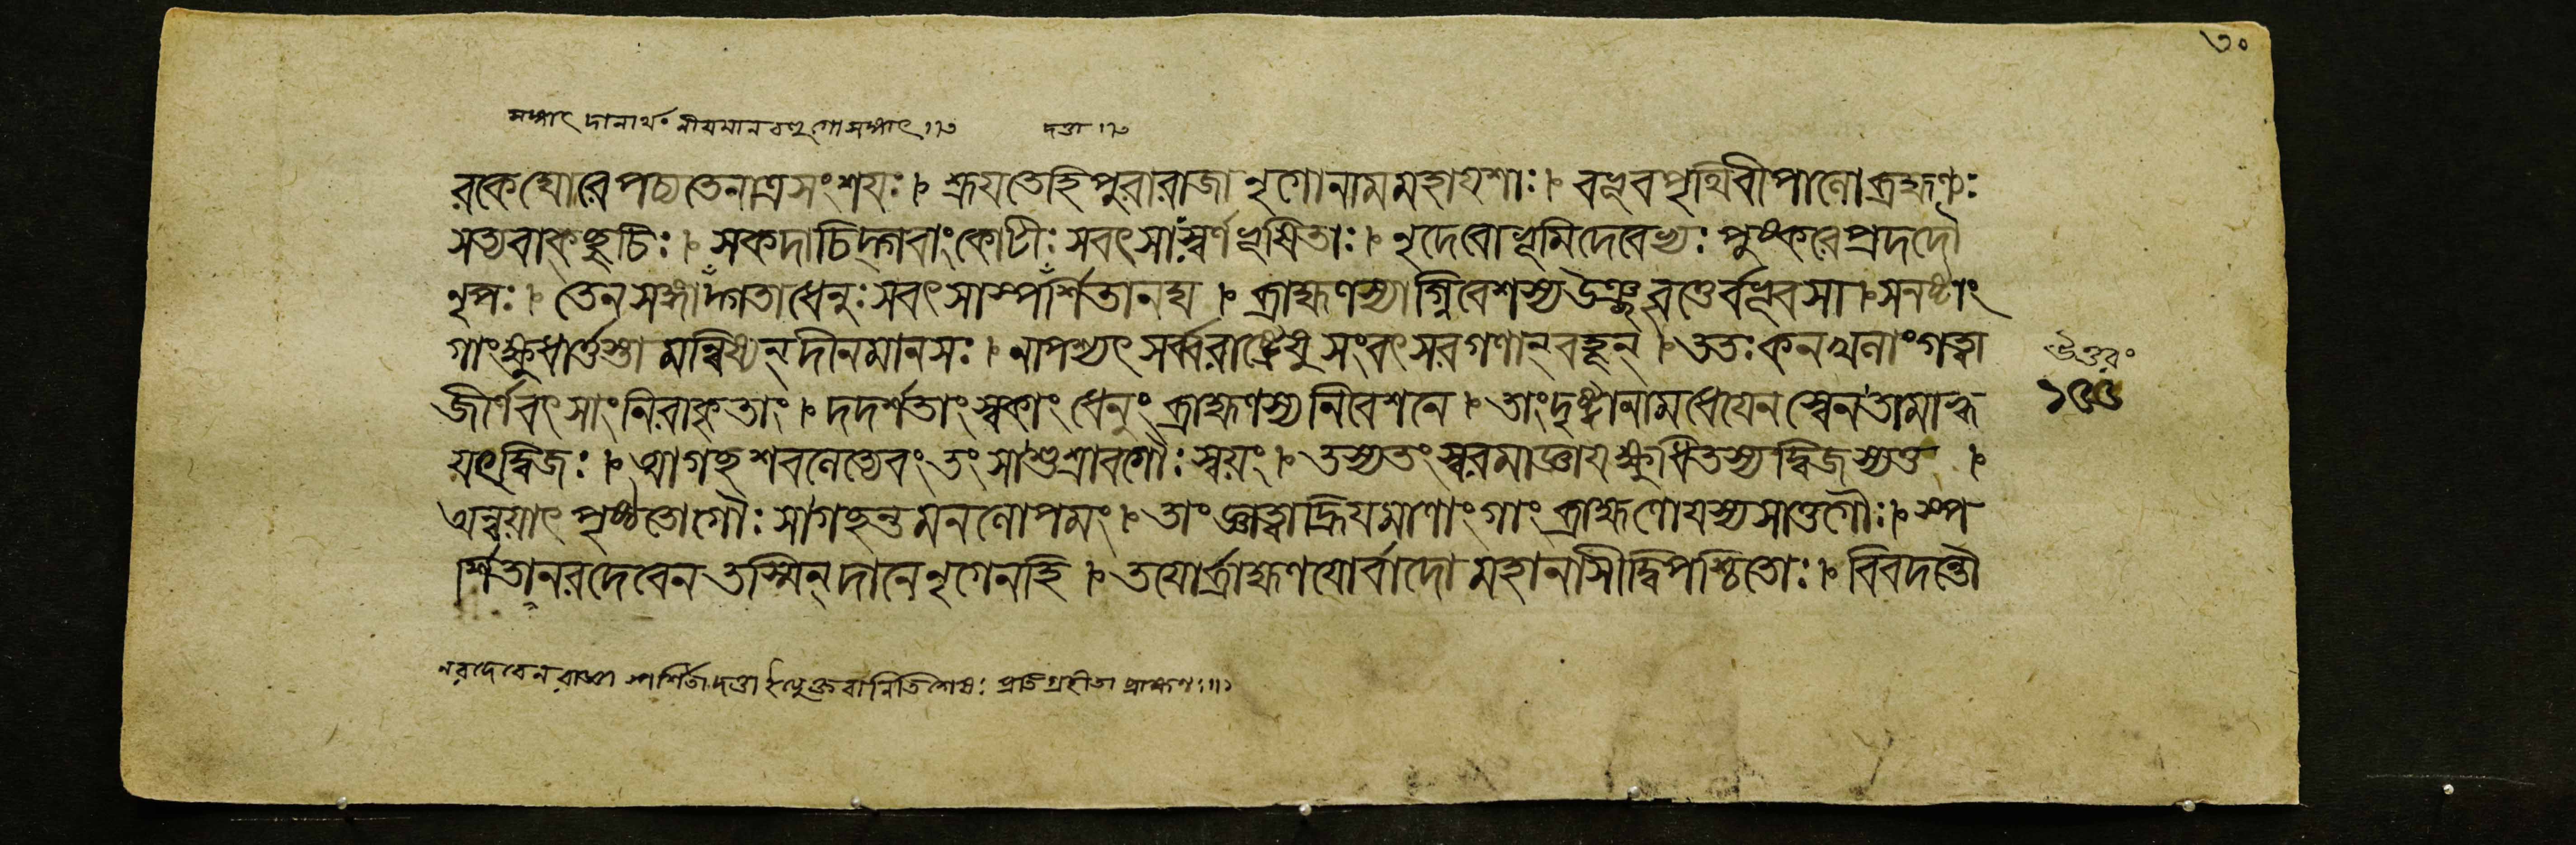 ৩০
সঙ্গাৎ দানার্থং নীয়মানবহুগোসঙ্গাৎ ।৩ দত্তা ।৩
রকে ঘোরে পচ্যতে নাত্র সংশয়ঃ । শ্রূয়তে হি পুরা রাজা নৃগো নাম মহাযশাঃ । বভূব পৃথিবীপালো ব্রহ্মণ্যঃ
সত্যবাক্ শুচিঃ । স কদাচিদ্গবাং কোটীঃ সবৎসাঃ স্বর্ণভূষিতাঃ । নৃদেবো ভূমিদেবেভ্যঃ পুষ্করে প্রদদৌ
নৃপঃ । তেন সঙ্গাদ্গতা ধেনুঃ সবৎসা স্পর্শিতানঘ । ব্রাহ্মণস্যাগ্নিবেশস্য উঞ্ছবৃত্তের্বভূব সা । স নষ্টাং
গাং ক্ষুধার্ত্তস্তামন্বিষ্যন্ দীনমানসঃ । নাপশ্যৎ সর্ব্বরাষ্ট্রেষু সংবৎসরগণান্ বহূন্ । ততঃ কনখলাং গত্বা
উত্তরং
১৫৫
জীর্ণবৎসাং নিরাকৃতাং । দদর্শ তাং স্বকাং ধেনুং ব্রাহ্মণস্য নিবেশনে । তাং দৃষ্ট্বা নামধেয়েন স্বেন তামাহ্ব
য়ৎ দ্বিজঃ । আগচ্ছ শবলেত্যেবং তং সা শুশ্রাব গৌঃ স্বয়ং । তস্য তং স্বরমাজ্ঞায় ক্ষুধিতস্য দ্বিজস্য তু ।
অন্বয়াৎ পৃষ্ঠতো গৌঃ সা গচ্ছন্তমনলোপমং । তাং জ্ঞাত্বা হ্রিয়মাণাং গাং ব্রাহ্মণো যস্য সা তু গৌঃ । স্প
র্শিতা নরদেবেন তস্মিন্ দানে নৃগেন হি । তয়োর্ব্রাহ্মণয়োর্বাদো মহানাসীদ্বিপশ্চিতোঃ । বিবদন্তৌ
নরদেবেন রাজ্ঞা স্পর্শিতা দত্তা ইত্যুক্তবানিতি শেষঃ প্রতিগ্রহীতা ব্রাহ্মণঃ ॥১